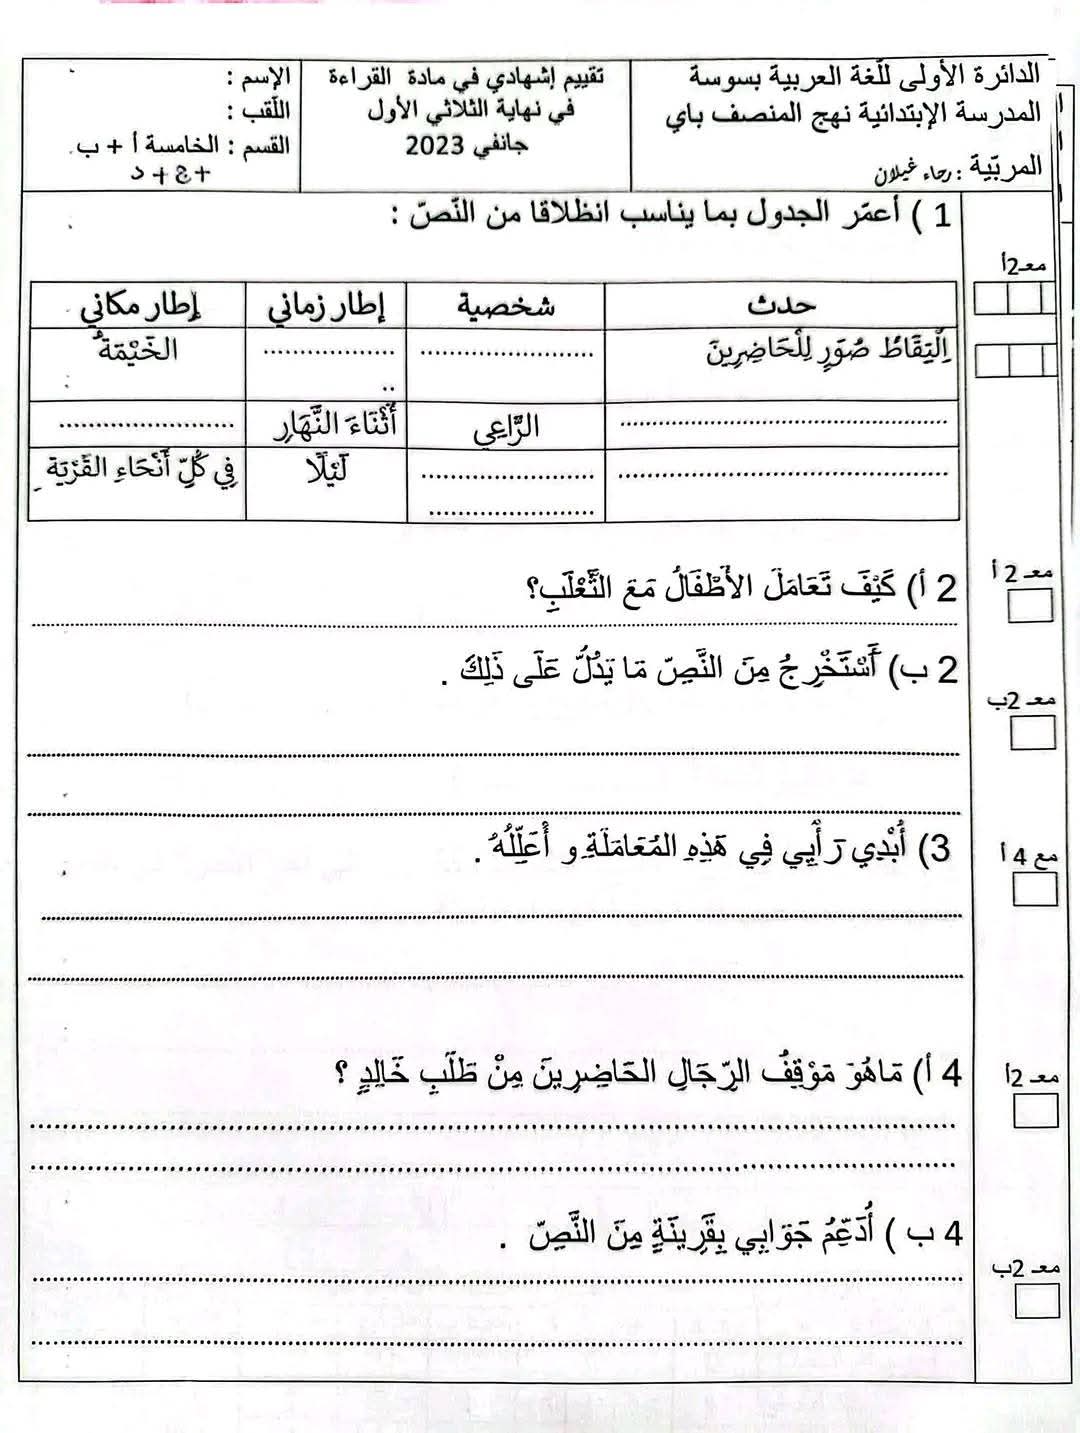 الدائرة الأولى للّغة العربية بسوسة
المدرسة الإبتدائية نهج المنصف باي
المربّية : رجاء غيلان
تقييم إشهادي في مادة القراءة
في نهاية الثلاثي الأول
جانفي 2023
الإسم :
اللّقب :
القسم : الخامسة أ + ب
+ ج + د
1 ) أعمّر الجدول بما يناسب انطلاقا من النّصّ :
معـ2أ
حدث شخصية إطار زماني إطار مكاني
اِلْتِقَاطُ صُوَرٍ لِلْحَاضِرِينَ .................. .................. الخَيْمَةُ
.................. الرَّاعِي أَثْنَاءَ النَّهَارِ ..................
.................. .................. لَيْلًا فِي كُلّ أَنْحَاءِ القَرْيَة
..................
2 أ) كَيْفَ تَعَامَلَ الأَطْفَالُ مَعَ الثَّعْلَبِ؟
معـ 2 أ
2 ب) أَسْتَخْرِجُ مِنَ النَّصِّ مَا يَدُلُّ عَلَى ذَلِكَ .
معـ 2ب
3) أُبْدِي رَأْيِي فِي هَذِهِ المُعَامَلَةِ و أُعَلِّلُهُ .
مع 4 أ
4 أ) مَاهُوَ مَوْقِفُ الرّجَالِ الحَاضِرِينَ مِنْ طَلَبِ خَالِدٍ ؟
معـ 2أ
4 ب ) أُدَعِّمُ جَوَابِي بِقَرِينَةٍ مِنَ النَّصِّ .
معـ 2ب